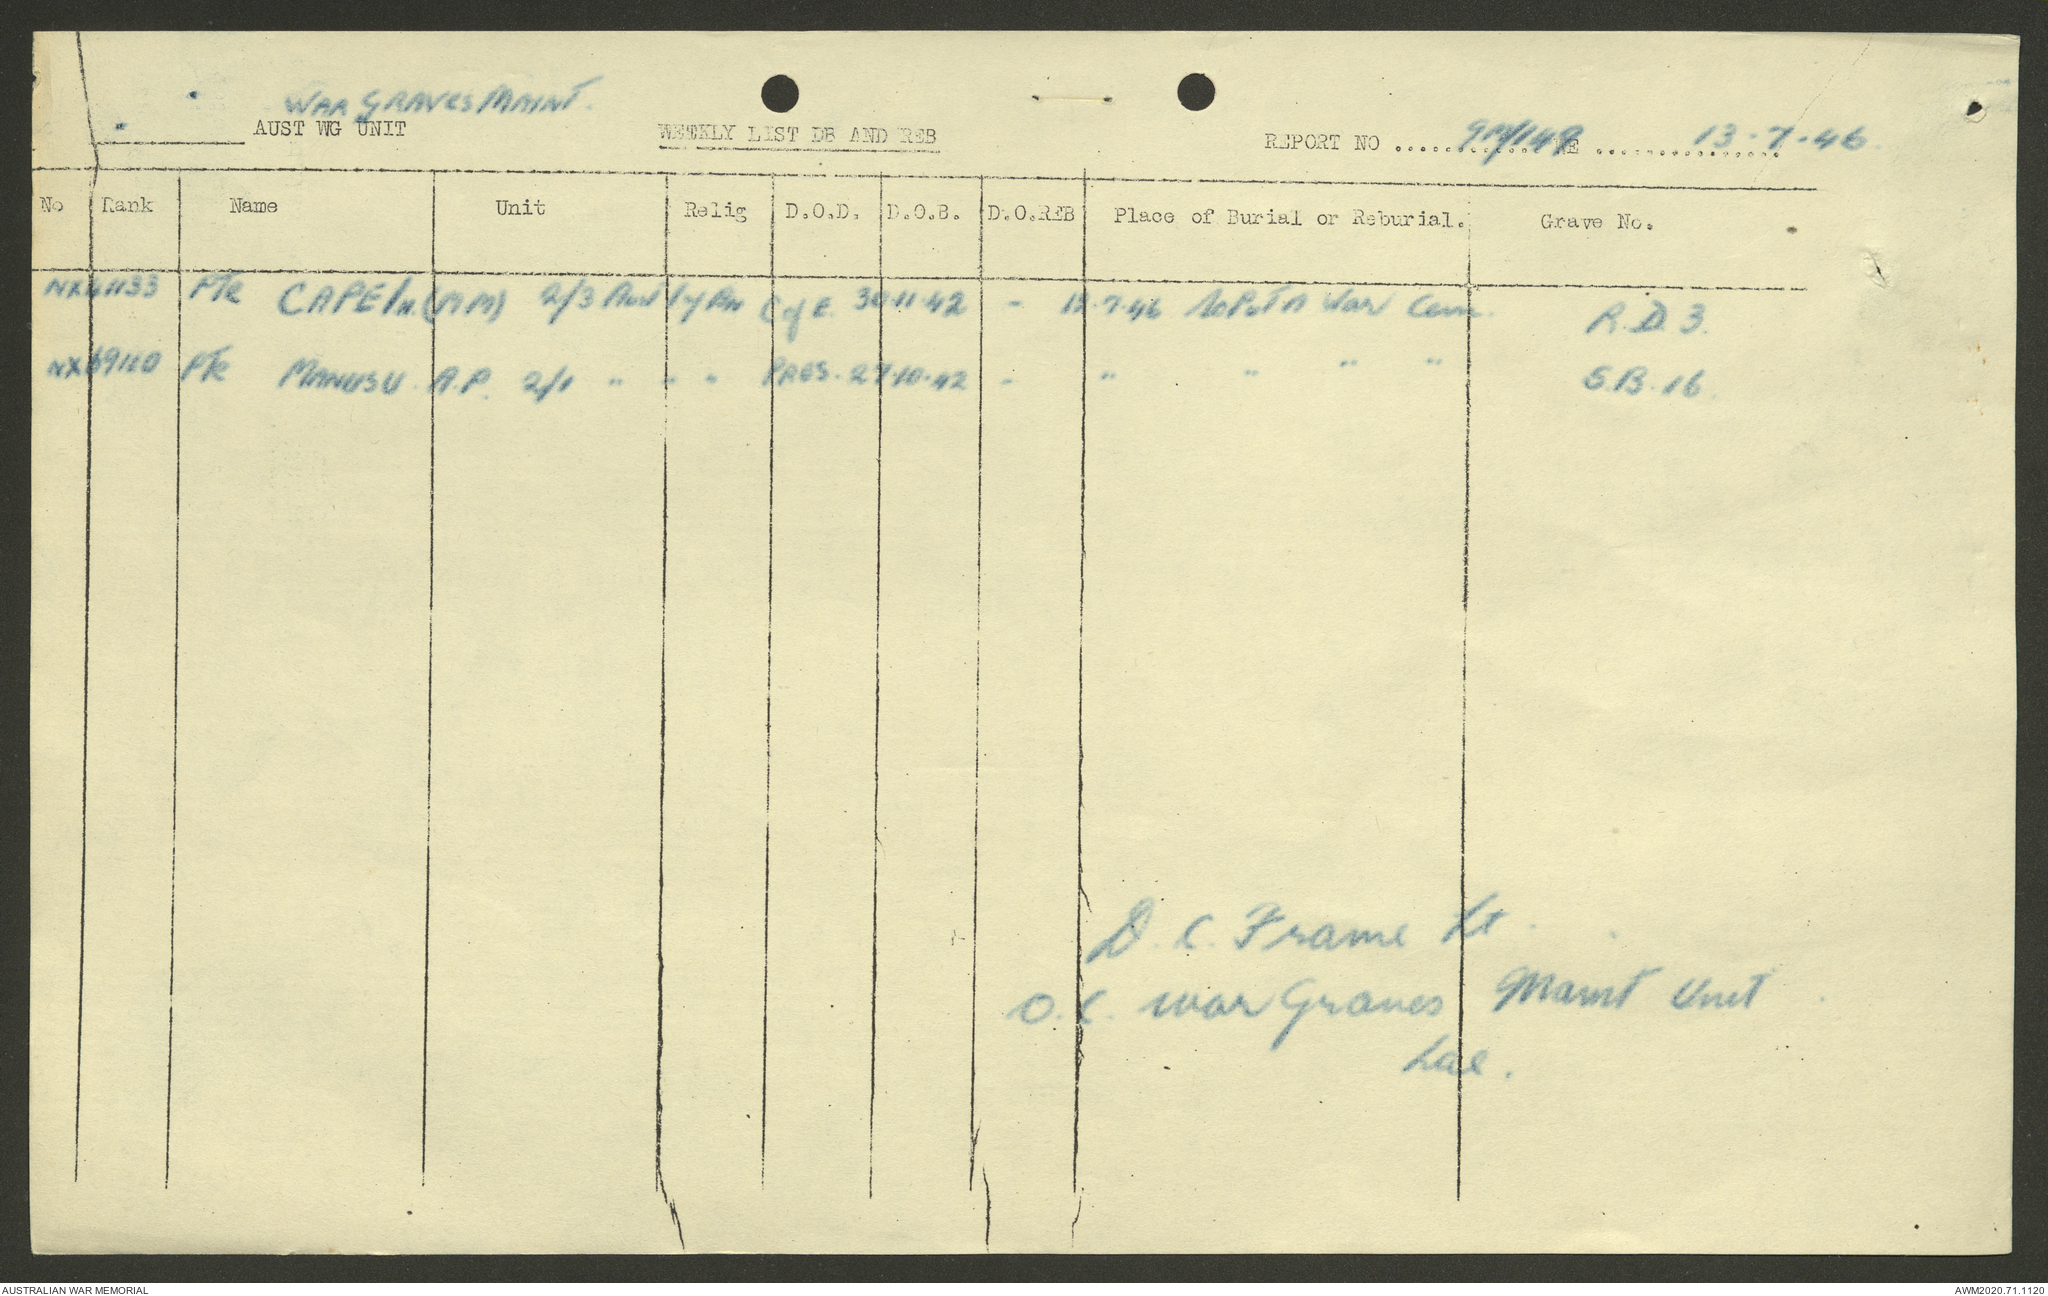 WAR GRAVES MAINT.
AUST WG UNIT WEEKLY LIST DB AND REB REPORT NO .............. WE ............... 13-7-46.
No Rank Name Unit Relig D.O.D. D.O.B. D.O.REB Place of Burial or Reburial. Grave No.
Pte CAPELN. (MM) 2/3 Aust Iy Bn C of E. 30-11-42 - 12.7.46 SOPUTA War Cem. R.D.3.
Pte MANUSU A.P. 2/1 " " " PRES. 27.10.42 - " " " " S.B.16.
D. C. Frame Lt.
O.C. War Graves Maint Unit
Lae.
AUSTRALIAN WAR MEMORIAL AWM2020.71.1120